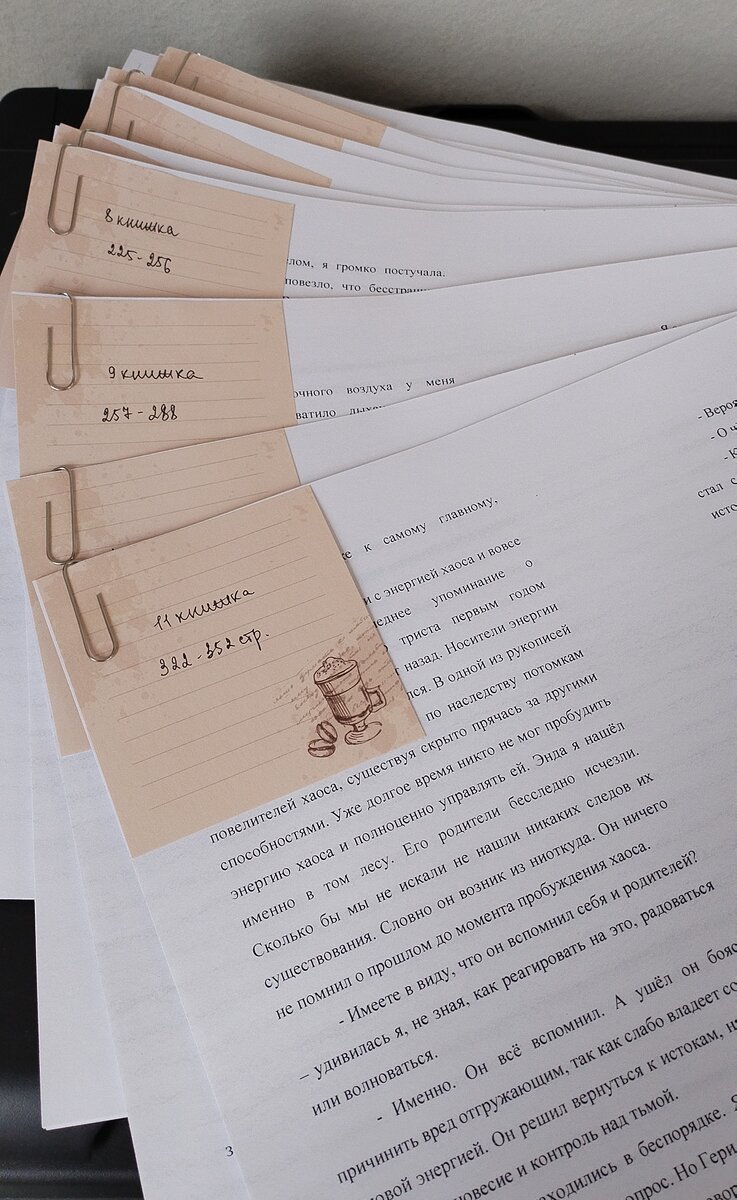 8 книшка
225-256
елом, я громко постучала.
повезло, что бесстраш
9 книшка
257-288
очного воздуха у меня
ватило дыха
11 книшка
322-352 стр.
ке к самому главному,
и с энергией хаоса и вовсе
еднее упоминание о
триста первым годом
т назад. Носители энергии
лся. В одной из рукописей
по наследству потомкам
повелителей хаоса, существуя скрыто прячась за другими
способностями. Уже долгое время никто не мог пробудить
энергию хаоса и полноценно управлять ей. Энда я нашёл
именно в том лесу. Его родители бесследно исчезли.
Сколько бы мы не искали не нашли никаких следов их
существования. Словно он возник из ниоткуда. Он ничего
не помнил о прошлом до момента пробуждения хаоса.
- Имеете в виду, что он вспомнил себя и родителей?
– удивилась я, не зная, как реагировать на это, радоваться
или волноваться.
- Именно. Он всё вспомнил. А ушёл он бояс
причинить вред отгружающим, так как слабо владеет со
ковой энергией. Он решил вернуться к истокам, на
новесие и контроль над тьмой.
ходились в беспорядке. Я
прос. Но Гери
- Вероя
- О ч
- К
стал с
исто
3